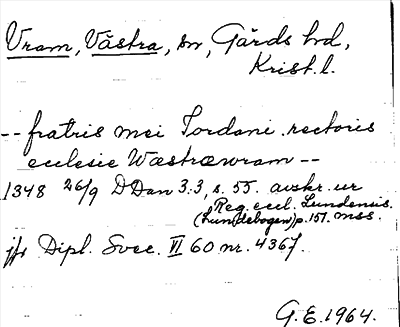 Vram, Västra, sn, Gärds hd,
Krist.l.
-- fratris mei Iordani rectoris
ecclesie Wæstræwram --
1348 26/9 DDan 3:3, s. 55. avskr. ur
Reg. eccl. Lundensis
(Lundebogen) p. 151. mss.
jfr Dipl. Svec. VI 60 nr. 4367.
G.E. 1964.